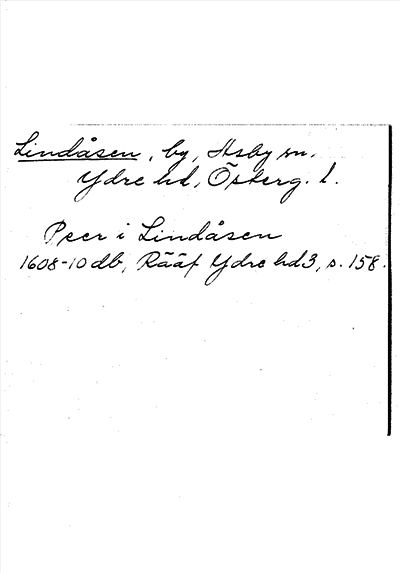 Lindåsen, by, Asby sn.
Ydre hd, Österg. l.
Peer i Lindåsen
1608-10 db, Rääf Ydre hd 3, s. 158.